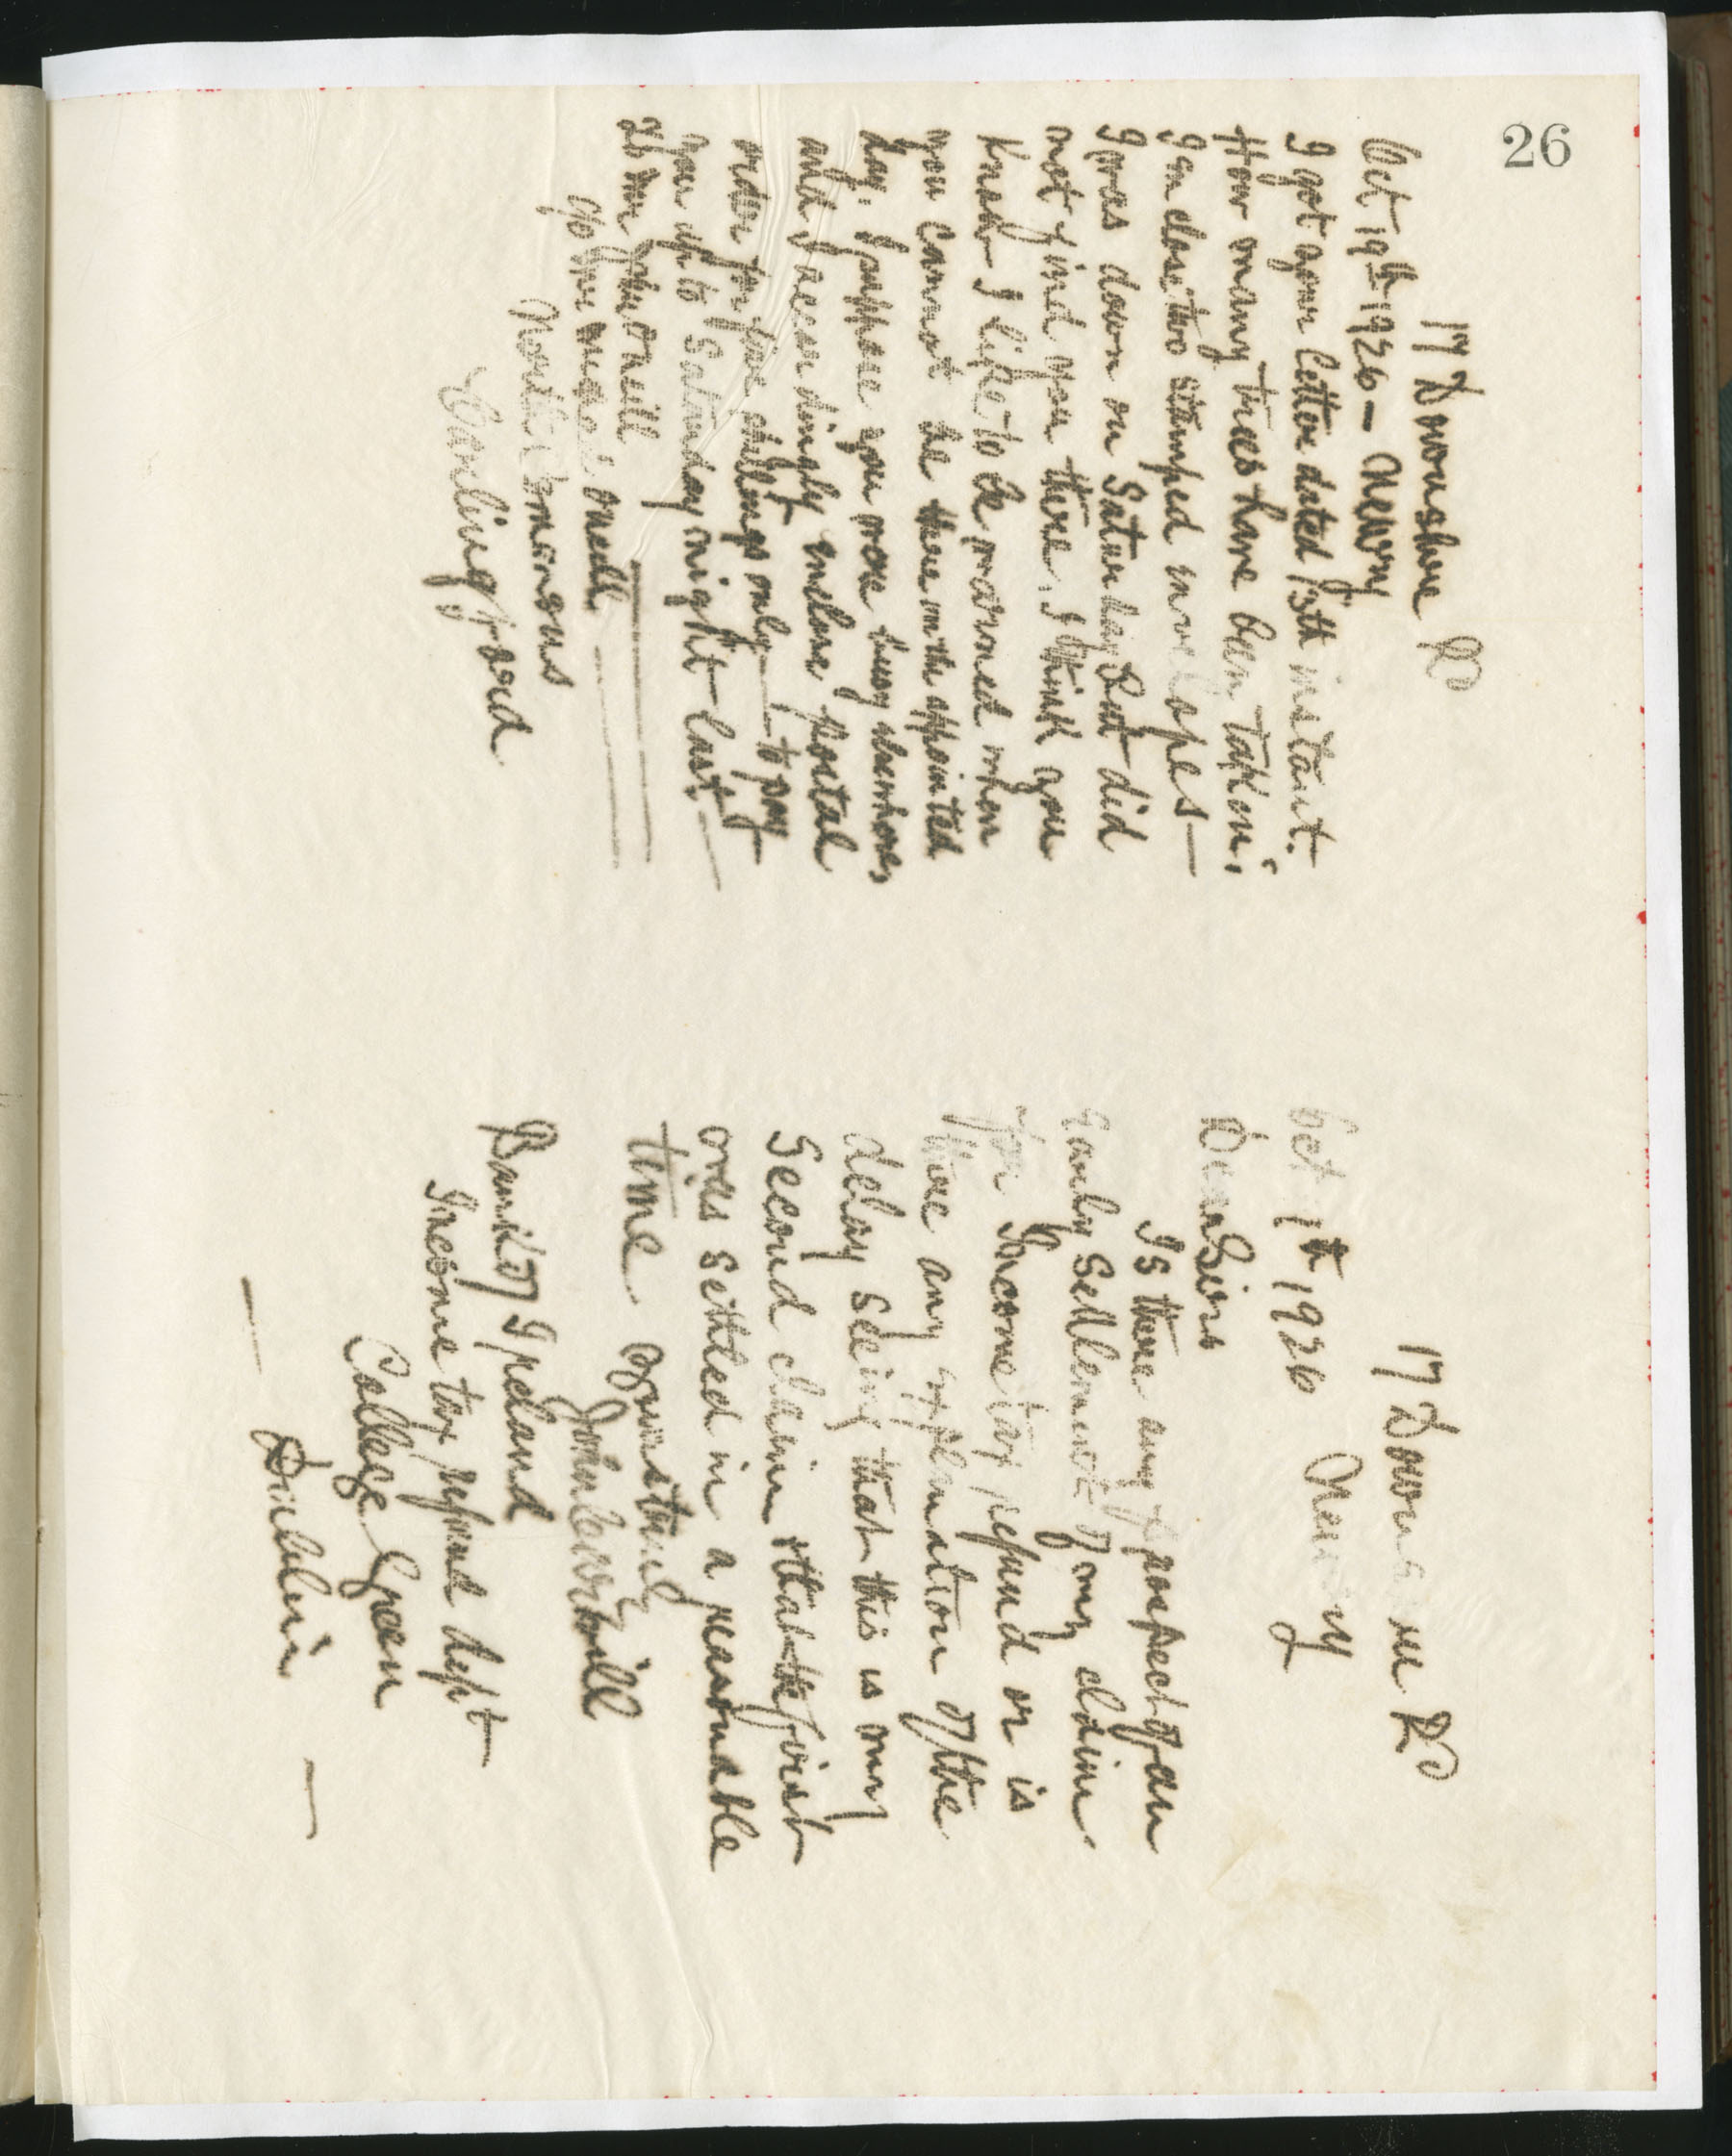 26
17 Downshire Rd
Oct 19th 1926 — Newry
I got your letter dated 13th instant.
How many trees have been taken.
I enclose two stamped invelopes —
I was down on Saturday But did
not find you there. I think you
know I like to be warned when
you cannot be there on the appointed
day. I suppose you were busy elsewhere
and I accordingly enclose postal
order for five shillings only — to pay
you up to Saturday night last. —
To Mr John Oneill
c/o Mrs Oneill
North Commons
Carlingford
17 Downshire Rd
Oct 1th 1926 Newry
Dear Sirs
Is there any prospect of an
early settlement of my claim
for Income tax refund or is
there any explanation of the
delay seeing that this is my
second claim & that the first
was settled in a reasonable
time yours truly
John
Bank of Ireland
Income tax refund dept
College Green
— Dublin —